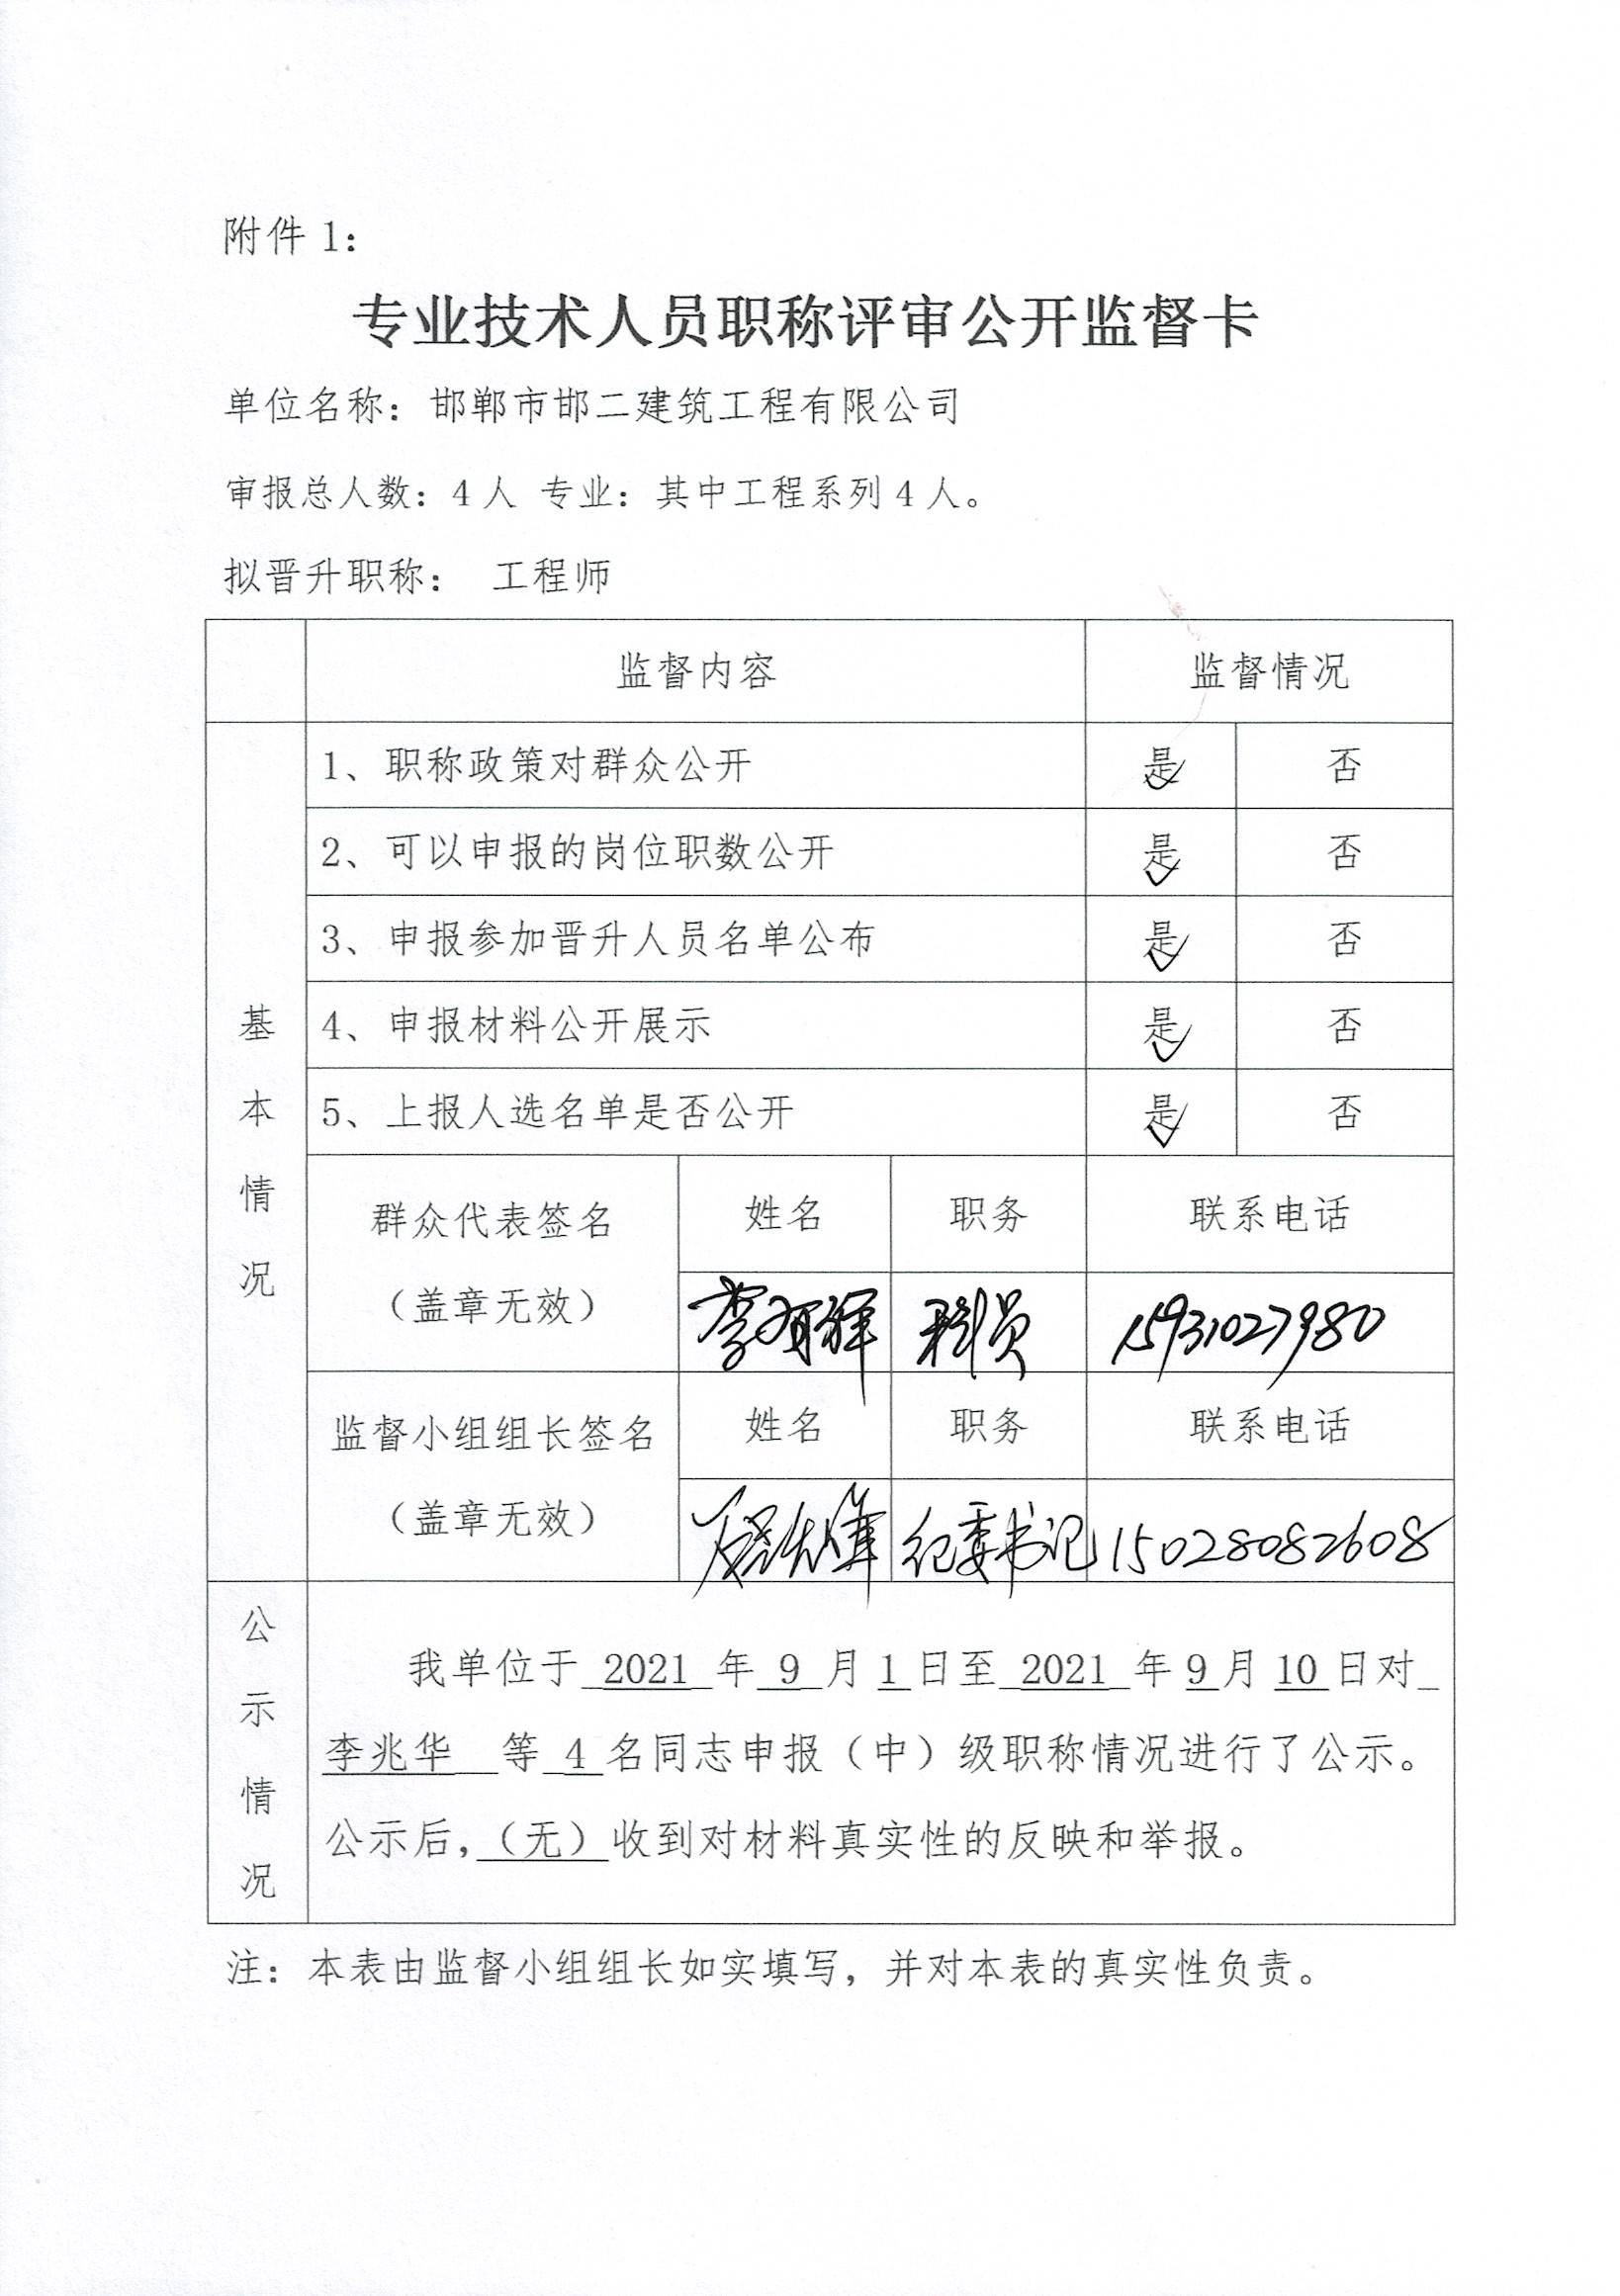 附件1：
专业技术人员职称评审公开监督卡
单位名称：邯郸市邯二建筑工程有限公司
审报总人数：4人 专业：其中工程系列4人。
拟晋升职称： 工程师
监督内容 监督情况
基本情况
1、职称政策对群众公开 是✓ 否
2、可以申报的岗位职数公开 是✓ 否
3、申报参加晋升人员名单公布 是✓ 否
4、申报材料公开展示 是✓ 否
5、上报人选名单是否公开 是✓ 否
群众代表签名 姓名 职务 联系电话
（盖章无效） 李 科员 15931027980
监督小组组长签名 姓名 职务 联系电话
（盖章无效） 纪委书记 15028082608
公示情况
我单位于 2021 年 9 月 1 日至 2021 年 9 月 10 日对
李兆华 等 4 名同志申报（中）级职称情况进行了公示。
公示后，（无）收到对材料真实性的反映和举报。
注：本表由监督小组组长如实填写，并对本表的真实性负责。